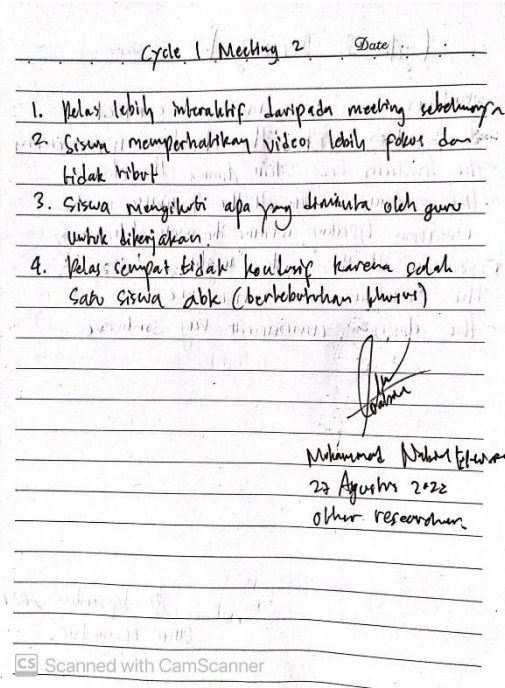 Cycle 1 Meeting 2 Date
1. Kelas lebih interaktif daripada meeting sebelumnya
2. Siswa memperhatikan video lebih fokus dan
tidak ribut
3. Siswa mengikuti apa yang diminta oleh guru
untuk dikerjakan.
4. Kelas sempat tidak kondusif karena salah
satu siswa abk (berkebutuhan khusus)
Mohammad
27 Agustus 2022
other researcher.
CS Scanned with CamScanner